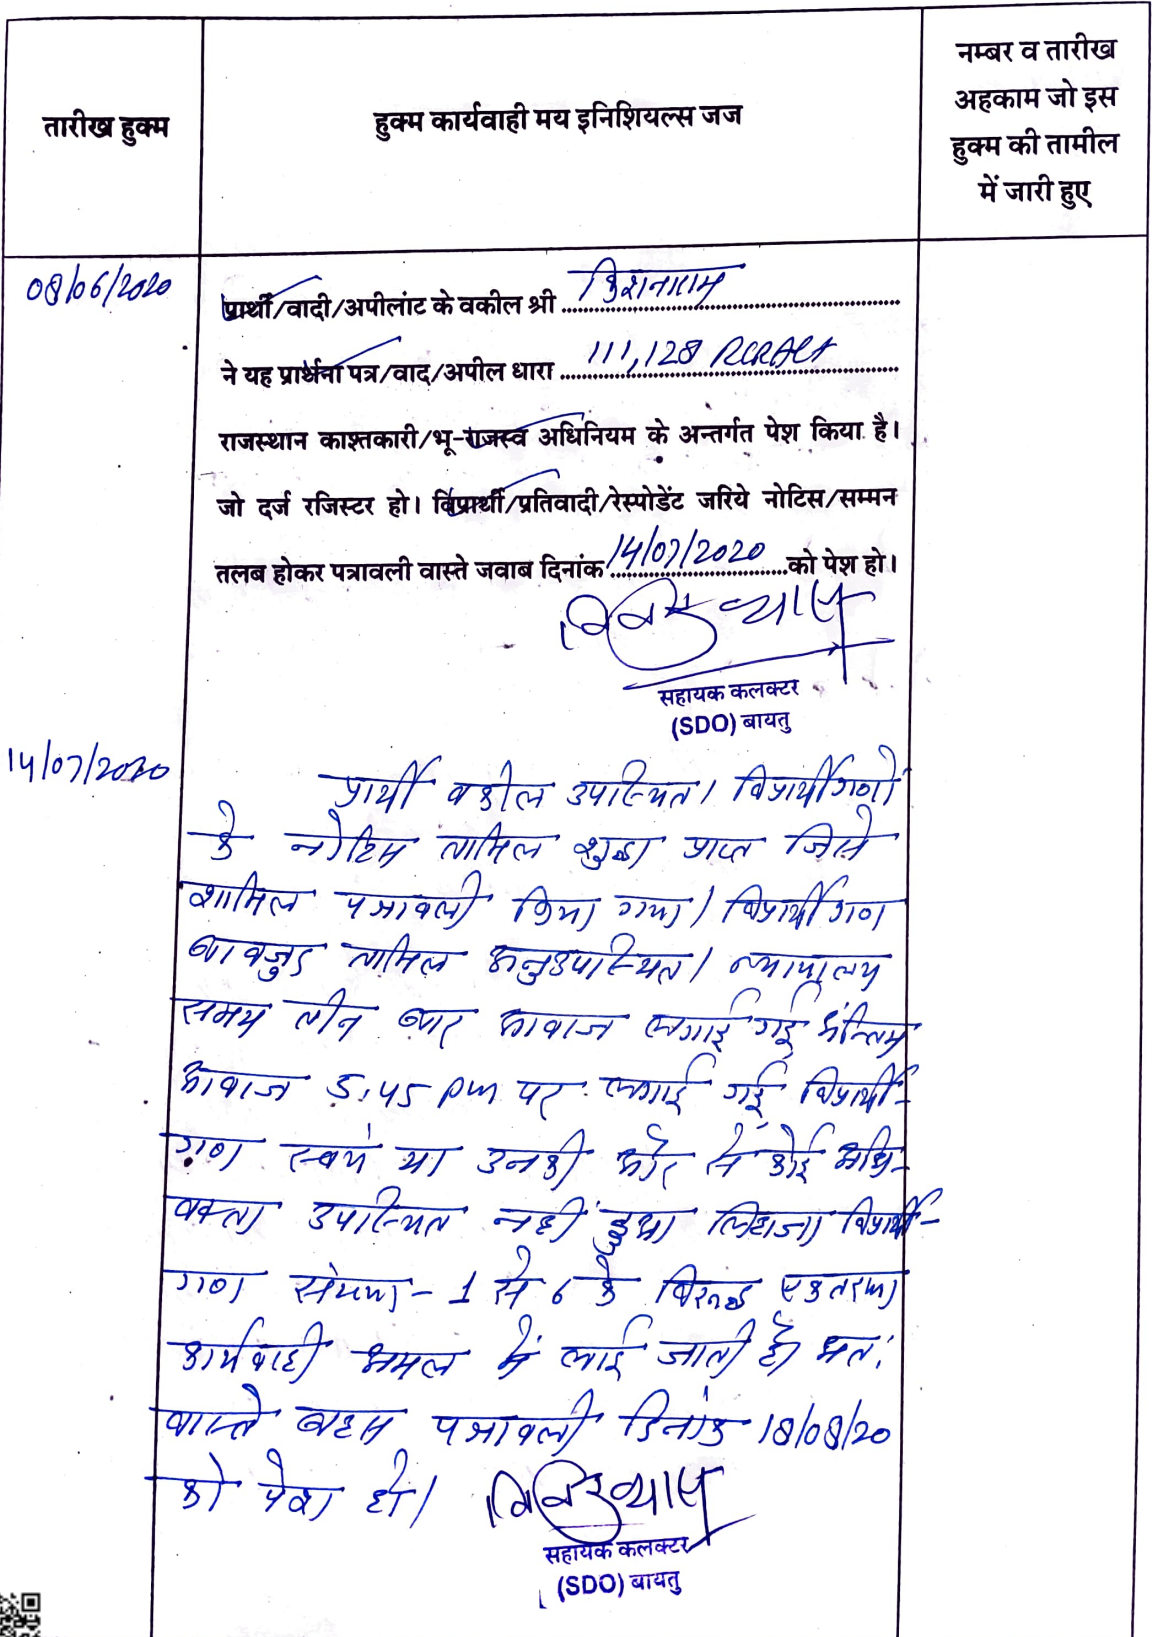 तारीख हुक्म
हुक्म कार्यवाही मय इनिशियल्स जज
नम्बर व तारीख
अहकाम जो इस
हुक्म की तामील
में जारी हुए
08/06/2020
प्रार्थी/वादी/अपीलांट के वकील श्री किशनाराम
ने यह प्रार्थना पत्र/वाद/अपील धारा 111,128 RLRAct
राजस्थान काश्तकारी/भू-राजस्व अधिनियम के अन्तर्गत पेश किया है।
जो दर्ज रजिस्टर हो। विप्रार्थी/प्रतिवादी/रेस्पोडेंट जरिये नोटिस/सम्मन
तलब होकर पत्रावली वास्ते जवाब दिनांक 14/07/2020 को पेश हो।
सहायक कलक्टर
(SDO) बायतु
14/07/2020
प्रार्थी वकील उपस्थित। विप्रार्थीगणों
के नोटिस तामिल शुदा प्राप्त जिसे
शामिल पत्रावली किया गया। विप्रार्थीगण
बावजुद तामिल अनुउपस्थित। न्यायालय
समय तीन बार आवाज लगाई गई अंन्तिम
आवाज 5.45 pm पर लगाई गई विप्रार्थी-
गण स्वयं या उनकी और से कोई अधि-
वक्ता उपस्थित नहीं हुआ लिहाजा विप्रार्थी-
गण संख्या - 1 से 6 के विरूद्ध एकतरफा
कार्यवाही अमल में लाई जाती है। अतः
वास्ते बहस पत्रावली दिनांक 18/08/20
को पेश हो।
सहायक कलक्टर
(SDO) बायतु